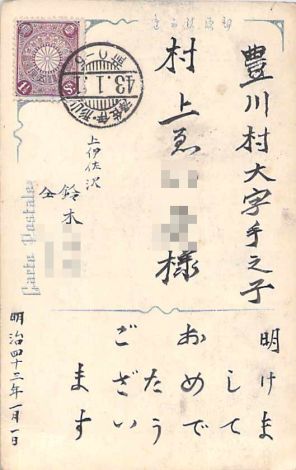 豊川村大字手之子
村上ゑ
様
上伊佐沢
鈴木
仝
明けま
して
おめで
たう
ござい
ます
明治四十三年一月一日
Carte Postale
43.1.1